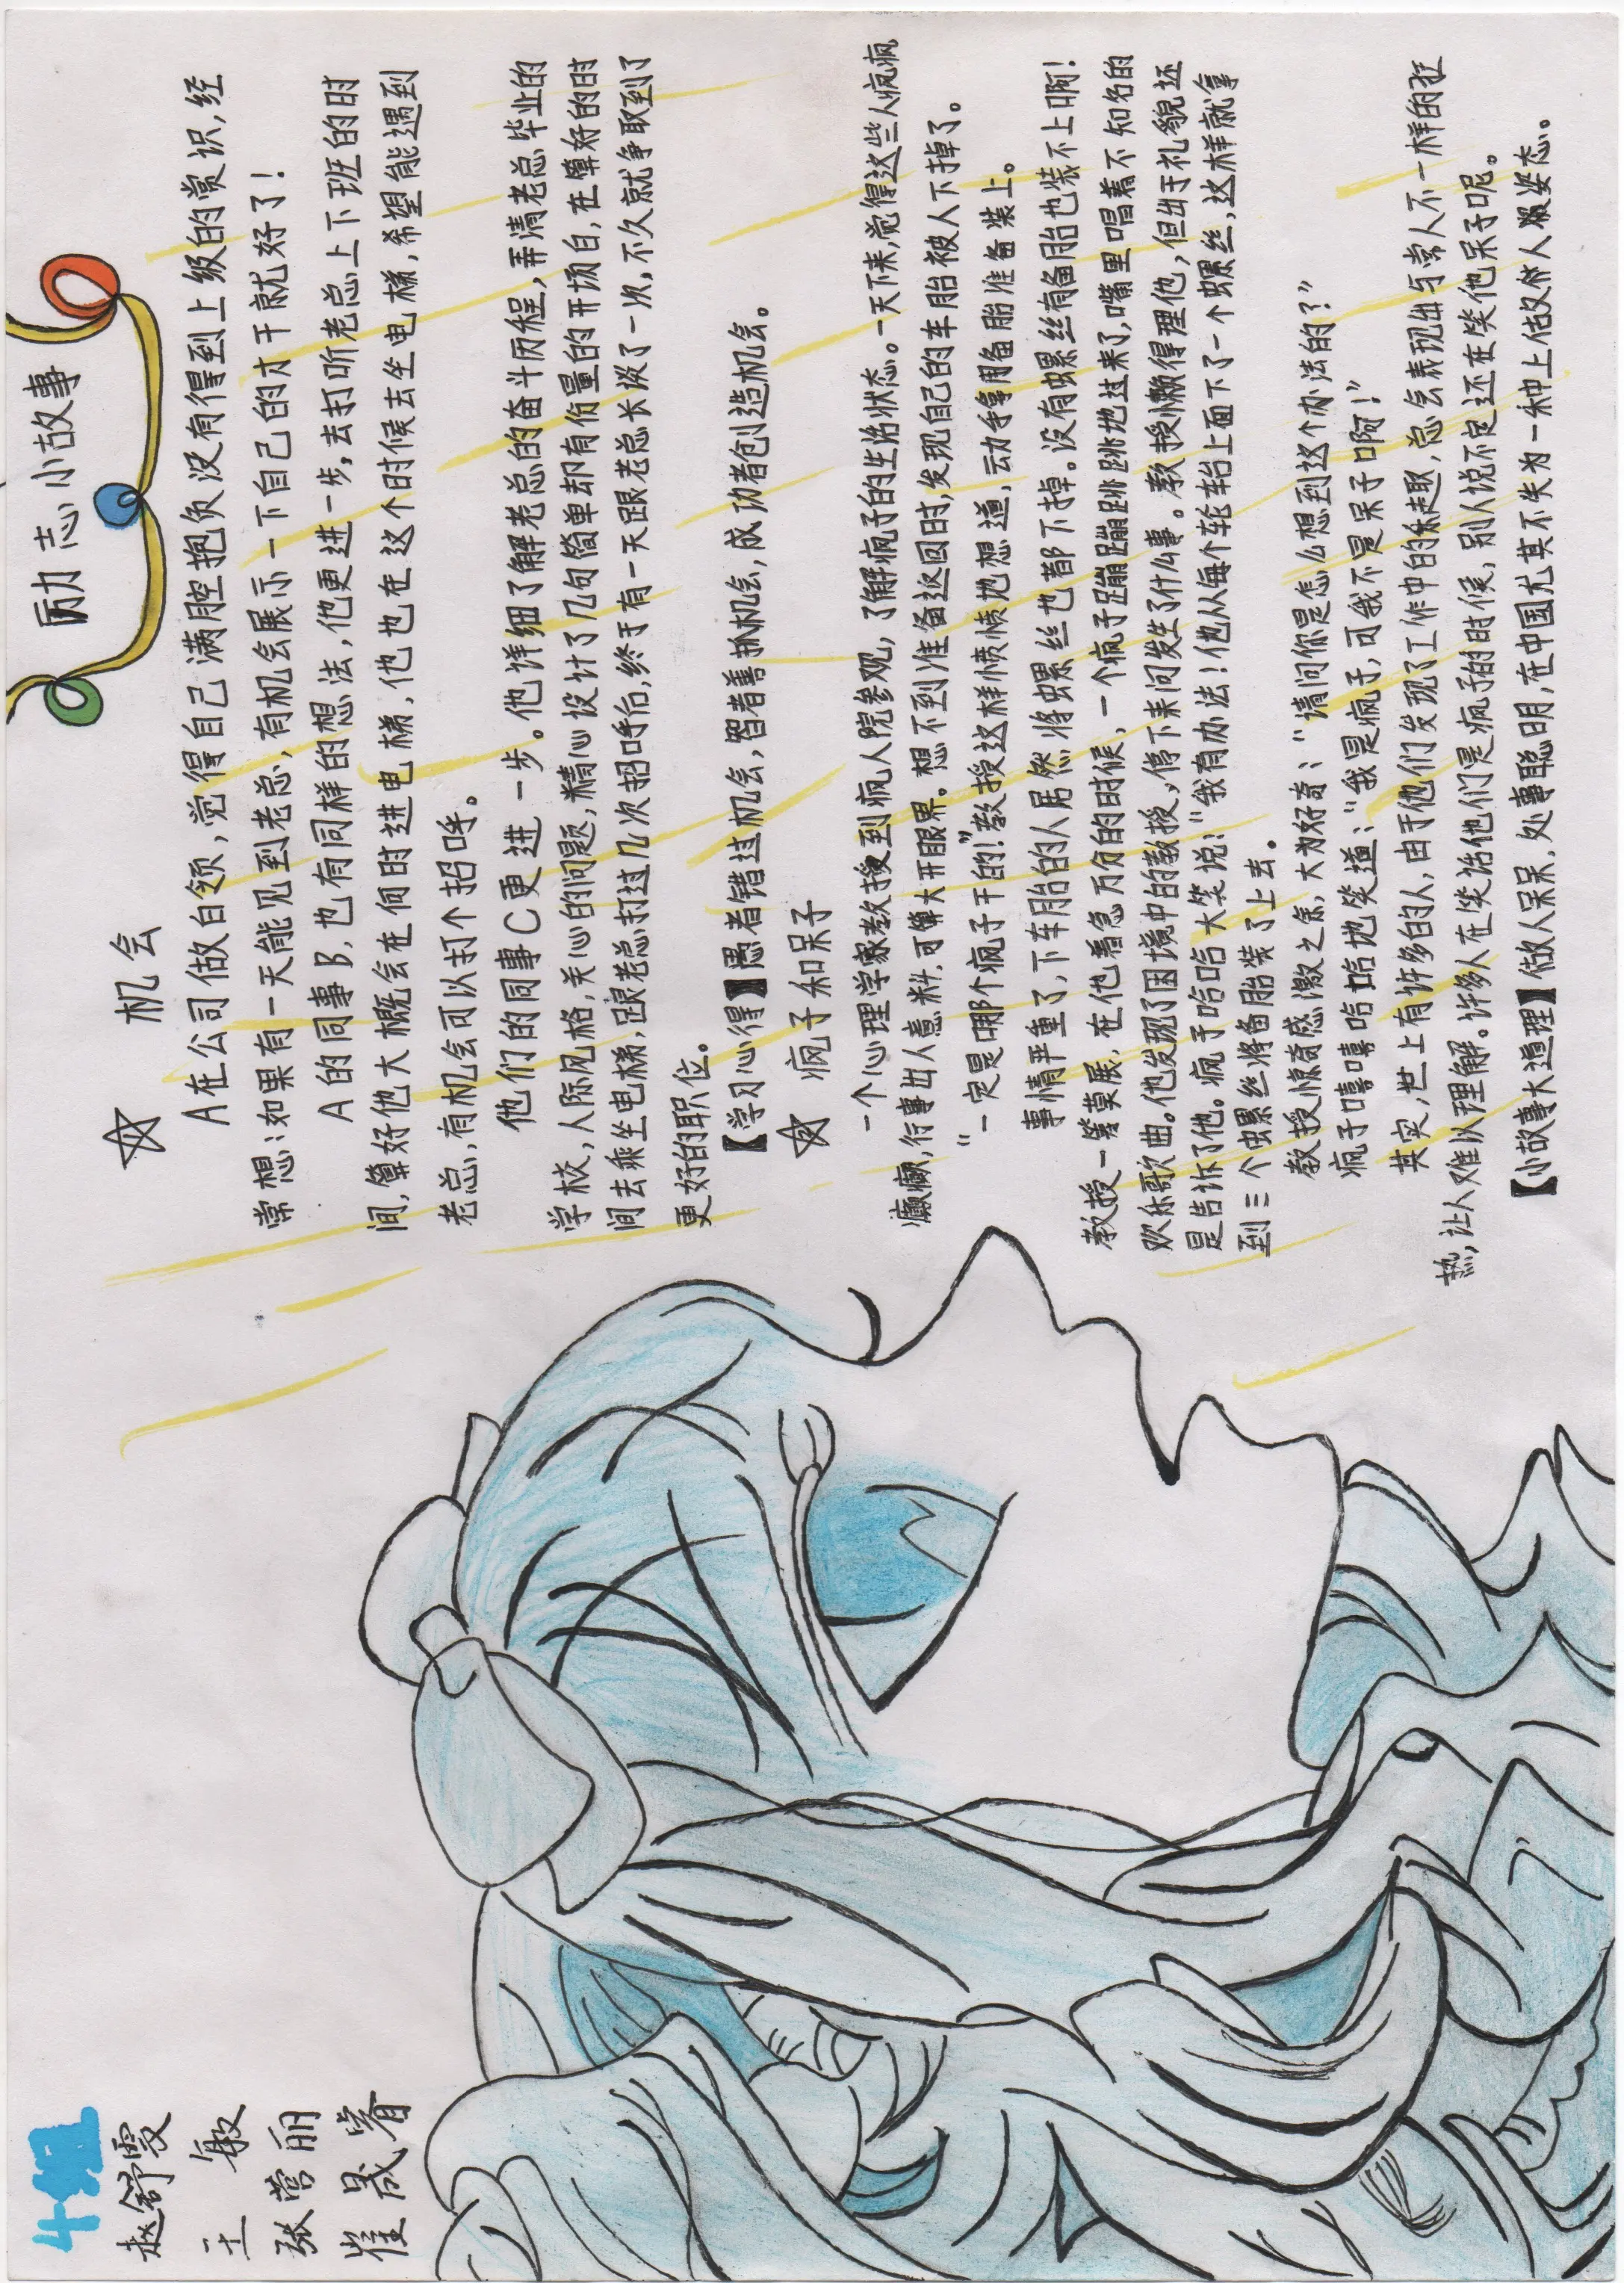 4组
赵舒雯
王敏
张营丽
崔晟睿
励志小故事
☆ 机会
A在公司做白领,觉得自己满腔抱负没有得到上级的赏识,经
常想:如果有一天能见到老总,有机会展示一下自己的才干就好了!
A的同事B,也有同样的想法,他更进一步,去打听老总上下班的时
间,算好他大概会在何时进电梯,他也在这个时候去坐电梯,希望能遇到
老总,有机会可以打个招呼。
他们的同事C更进一步。他详细了解老总的奋斗历程,弄清老总毕业的
学校,人际风格,关心的问题,精心设计了几句简单却有份量的开场白,在算好的时
间去乘坐电梯,跟老总打过几次招呼后,终于有一天跟老总长谈了一次,不久就争取到了
更好的职位。
【学习心得】愚者错过机会,智者善抓机会,成功者创造机会。
☆ 疯子和呆子
一个心理学家教授到疯人院参观,了解疯子的生活状态。一天下来,觉得这些人疯疯
癫癫,行事出人意料,可算大开眼界。想不到准备返回时,发现自己的车胎被人下掉了。
“一定是哪个疯子干的!”教授这样愤愤地想道,动手拿备胎准备装上。
事情严重了,下车胎的人居然将螺丝也都下掉。没有螺丝有备胎也装不上啊!
教授一筹莫展,在他着急万分的时候,一个疯子蹦蹦跳跳地过来了,嘴里唱着不知名的
欢乐歌曲。他发现了困境中的教授,停下来问发生了什么事。教授懒得理他,但出于礼貌还
是告诉了他。疯子哈哈大笑说:“我有办法!他从每个轮胎上面下了一个螺丝,这样就拿
到三个螺丝将备胎装了上去。
教授惊奇感激之余,大为好奇:“请问你是怎么想到这个办法的?”
疯子嘻嘻哈哈地笑道:“我是疯子,可我不是呆子啊!”
其实,世上有许多的人,由于他们发现了工作中的乐趣,总会表现出与常人不一样的狂
热,让人难以理解。许多人在笑话他们是疯子的时候,别人说不定还在笑他呆子呢。
【小故事大道理】做人呆呆,处事聪明,在中国尤其不失为一种上佳做人姿态。